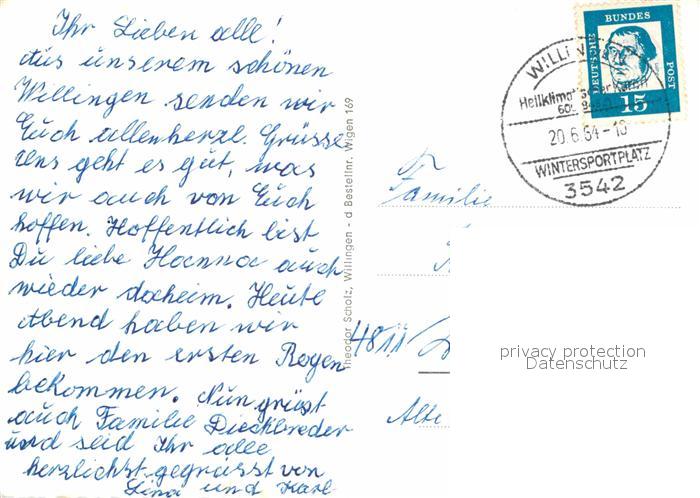 Ihr Lieben alle!
Aus unserem schönen
Willingen senden wir
Euch allenherzl. Grüsse
Uns geht es gut, was
wir auch von Euch
hoffen. Hoffentlich bist
Du liebe Hanna auch
wieder daheim. Heute
Abend haben wir
hier den ersten Regen
bekommen. Nun grüst
auch Familie Dieckbreder
und seid Ihr alle
herzlichst gegrüsst von
Lina und Karl
Theodor Scholz, Willingen - d Bestellnr. Wigen 169
DEUTSCHE BUNDES POST
15
WILLINGEN
Heilklimatischer Kurort
20.6.64-10
WINTERSPORTPLATZ
3542
Familie
4811
Alte
privacy protection
Datenschutz